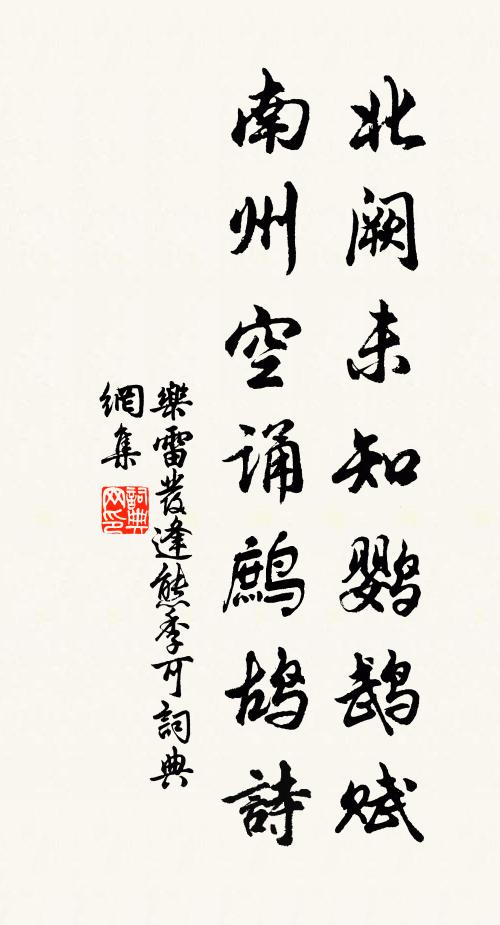 北阙未知鹦鹉赋
南州空诵鹧鸪詩
樂雷發逢熊季可詞典
網集
詞典
网印